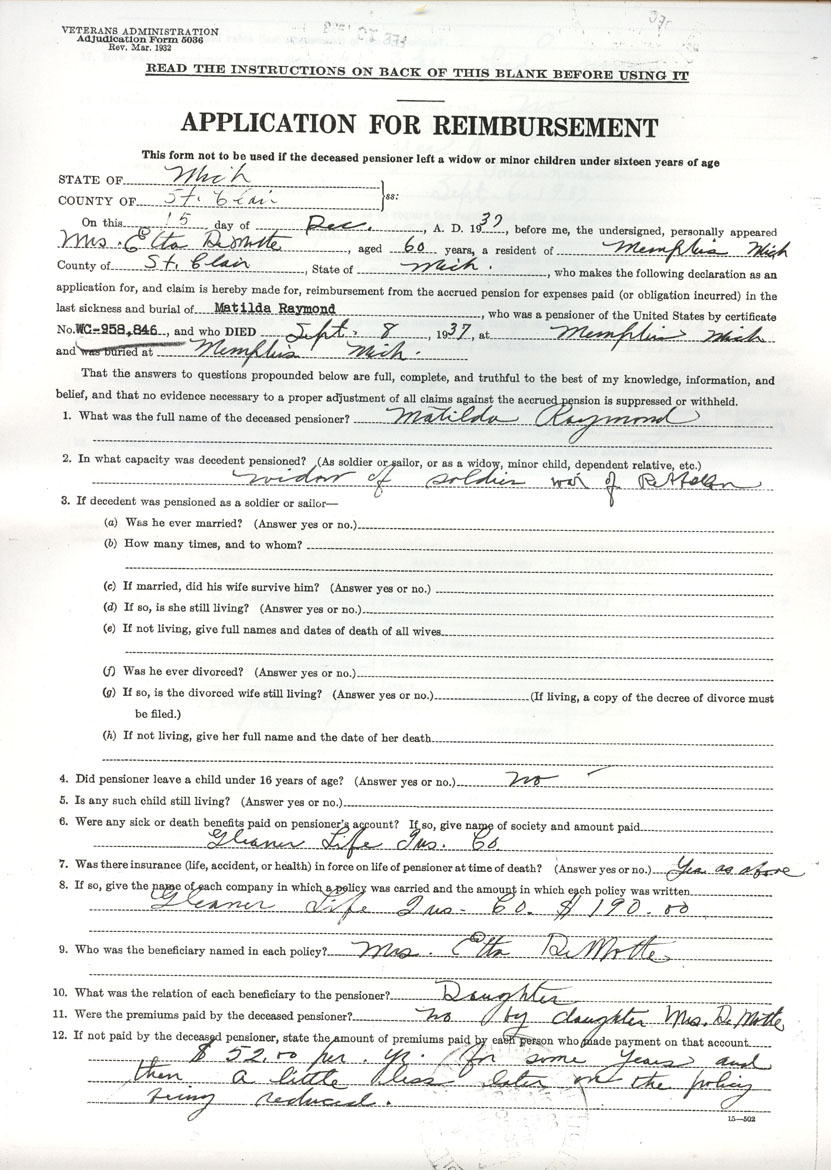 VETERANS ADMINISTRATION
Adjudication Form 5036
Rev. Mar. 1932
READ THE INSTRUCTIONS ON BACK OF THIS BLANK BEFORE USING IT
APPLICATION FOR REIMBURSEMENT
This form not to be used if the deceased pensioner left a widow or minor children under sixteen years of age
STATE OF Mich
COUNTY OF St. Clair ss:
On this 15 day of Dec., A. D. 1937, before me, the undersigned, personally appeared
Mrs. Etta DeMotte, aged 60 years, a resident of Memphis Mich
County of St. Clair, State of Mich., who makes the following declaration as an
application for, and claim is hereby made for, reimbursement from the accrued pension for expenses paid (or obligation incurred) in the
last sickness and burial of Matilda Raymond, who was a pensioner of the United States by certificate
No. WC-958,846, and who DIED Sept. 8, 1937, at Memphis Mich
and was buried at Memphis Mich.
That the answers to questions propounded below are full, complete, and truthful to the best of my knowledge, information, and
belief, and that no evidence necessary to a proper adjustment of all claims against the accrued pension is suppressed or withheld.
1. What was the full name of the deceased pensioner? Matilda Raymond
2. In what capacity was decedent pensioned? (As soldier or sailor, or as a widow, minor child, dependent relative, etc.)
widow of soldier war of
3. If decedent was pensioned as a soldier or sailor—
(a) Was he ever married? (Answer yes or no.)
(b) How many times, and to whom?
(c) If married, did his wife survive him? (Answer yes or no.)
(d) If so, is she still living? (Answer yes or no.)
(e) If not living, give full names and dates of death of all wives
(f) Was he ever divorced? (Answer yes or no.)
(g) If so, is the divorced wife still living? (Answer yes or no.) (If living, a copy of the decree of divorce must
be filed.)
(h) If not living, give her full name and the date of her death
4. Did pensioner leave a child under 16 years of age? (Answer yes or no.) no
5. Is any such child still living? (Answer yes or no.)
6. Were any sick or death benefits paid on pensioner's account? If so, give name of society and amount paid
Gleaner Life Ins. Co.
7. Was there insurance (life, accident, or health) in force on life of pensioner at time of death? (Answer yes or no.) Yes as above
8. If so, give the name of each company in which a policy was carried and the amount in which each policy was written
Gleaner Life Ins. Co. $190.00
9. Who was the beneficiary named in each policy? Mrs. Etta DeMotte
10. What was the relation of each beneficiary to the pensioner? Daughter
11. Were the premiums paid by the deceased pensioner? no by daughter Mrs. DeMotte
12. If not paid by the deceased pensioner, state the amount of premiums paid by each person who made payment on that account
$52.00 per. yr. for some years and
then a little less later on the policy
being reduced.
15—502